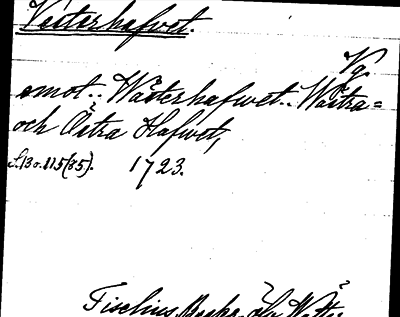 Vesterhafvet.
Vg.
emot.. Wästerhafwet.. Wästra=
och Östra Hafwet,
S. 130. 115(85). 1723.
Fischius, Beskr. öfv.